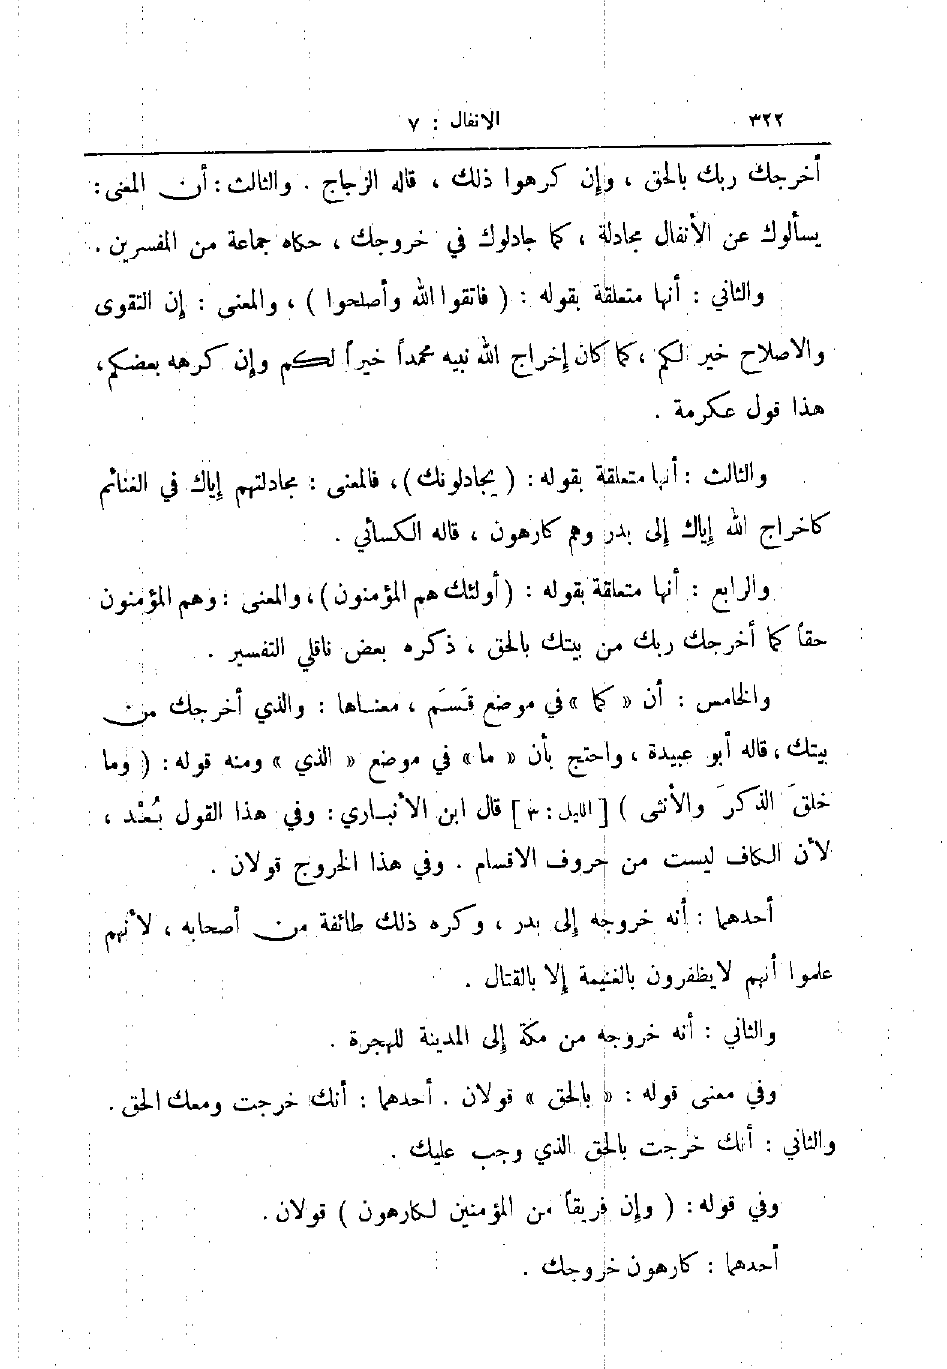 ٣٢٢ الانفال : ٧
أخرجك ربك بالحق ، وإن كرهوا ذلك ، قاله الزجاج . والثالث : أن المعنى :
يسألوك عن الأنفال مجادلة ، كما جادلوك في خروجك ، حكاه جماعة من المفسرين .
والثاني : أنها متعلقة بقوله : ( فاتقوا الله وأصلحوا ) ، والمعنى : إن التقوى
والاصلاح خير لكم ، كما كان إخراج الله نبيه محمداً خيراً لكم وإن كرهه بعضكم ،
هذا قول عكرمة .
والثالث : أنها متعلقة بقوله : ( يجادلونك ) ، فالمعنى : مجادلتهم إياك في الغنائم
كاخراج الله إياك إلى بدر وهم كارهون ، قاله الكسائي .
والرابع : أنها متعلقة بقوله : ( أولئك هم المؤمنون ) ، والمعنى : وهم المؤمنون
حقاً كما أخرجك ربك من بيتك بالحق ، ذكره بعض ناقلي التفسير .
والخامس : أن « كما » في موضع قَسَم ، معناها : والذي أخرجك من
بيتك ، قاله أبو عبيدة ، واحتج بأن « ما » في موضع « الذي » ومنه قوله : ( وما
خلقَ الذكرَ والأنثى ) [ الليل : ٣ ] قال ابن الأنباري : وفي هذا القول بُعْد ،
لأن الكاف ليست من حروف الاقسام . وفي هذا الخروج قولان .
أحدهما : أنه خروجه إلى بدر ، وكره ذلك طائفة من أصحابه ، لأنهم
علموا أنهم لا يظفرون بالغنيمة إلا بالقتال .
والثاني : أنه خروجه من مكة إلى المدينة للهجرة .
وفي معنى قوله : « بالحق » قولان . أحدهما : أنك خرجت ومعك الحق .
والثاني : أنك خرجت بالحق الذي وجب عليك .
وفي قوله : ( وإن فريقاً من المؤمنين لكارهون ) قولان .
أحدهما : كارهون خروجك .